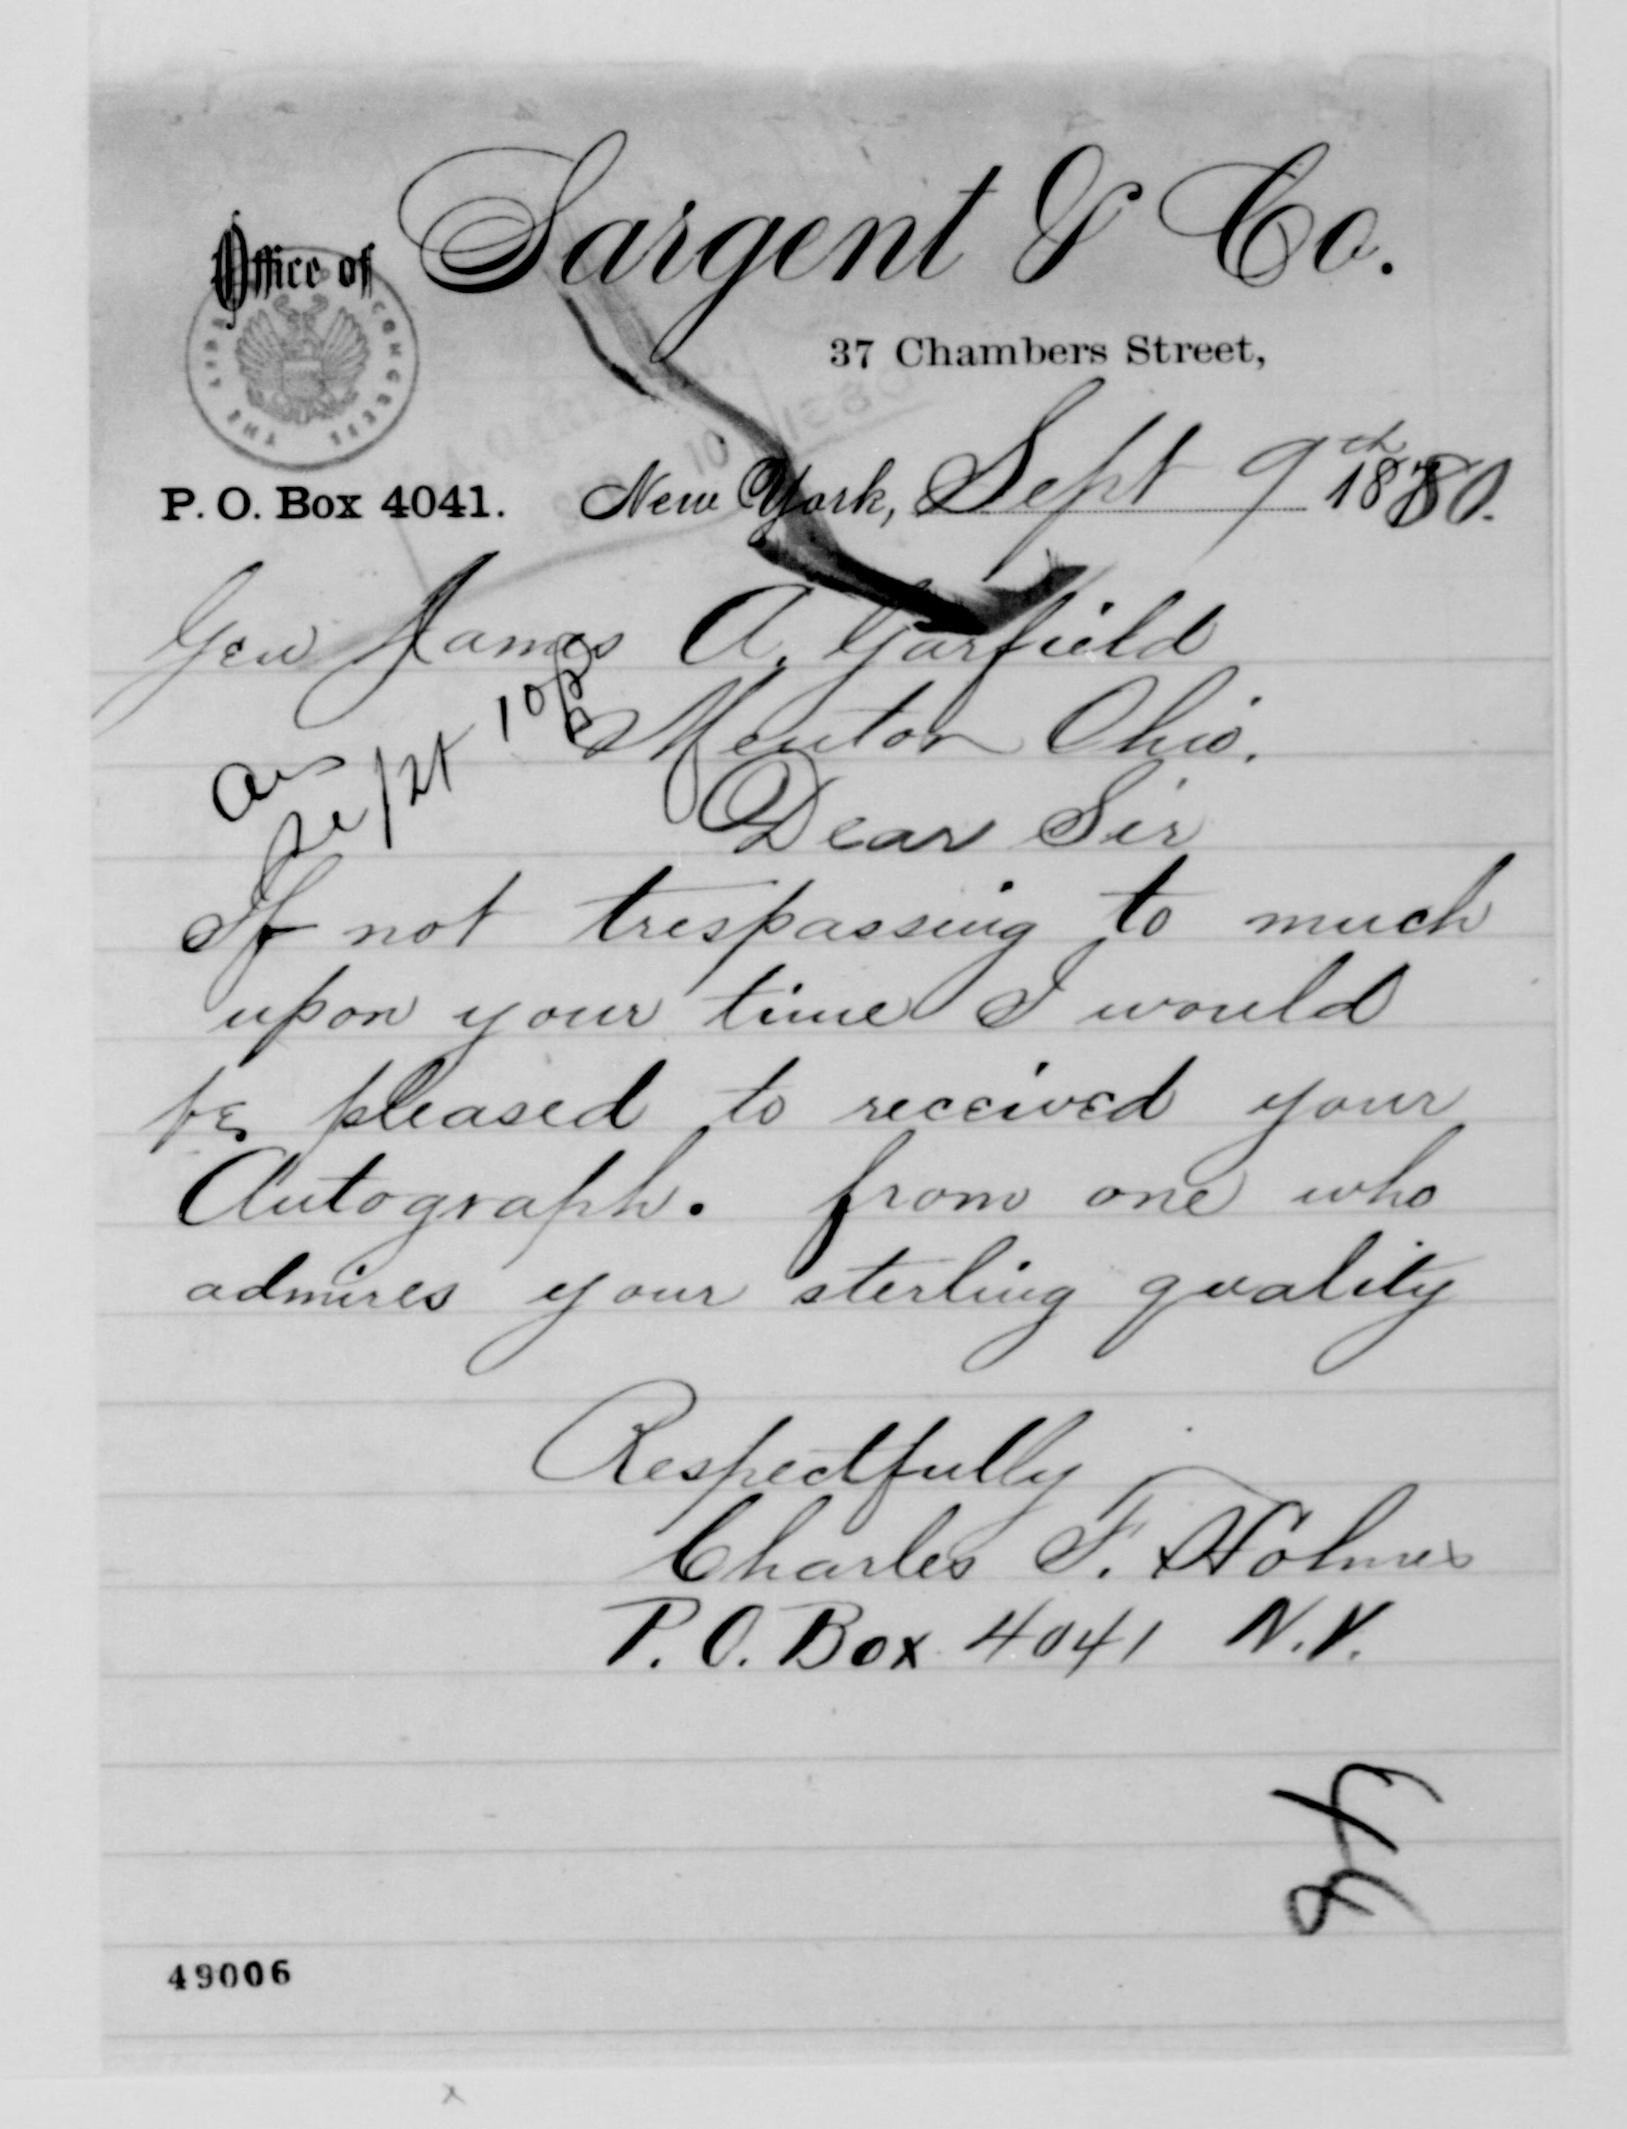 Office of Sargent & Co.
37 Chambers Street,
P. O. Box 4041. New York, Sept 9th 1880.
Gen James A. Garfield
Mentor Ohio.
Dear Sir
If not trespassing to much
upon your time I would
be pleased to received your
Autograph. from one who
admires your sterling quality
Respectfully
Charles F. Holmes
P.O. Box 4041 N.Y.
49006